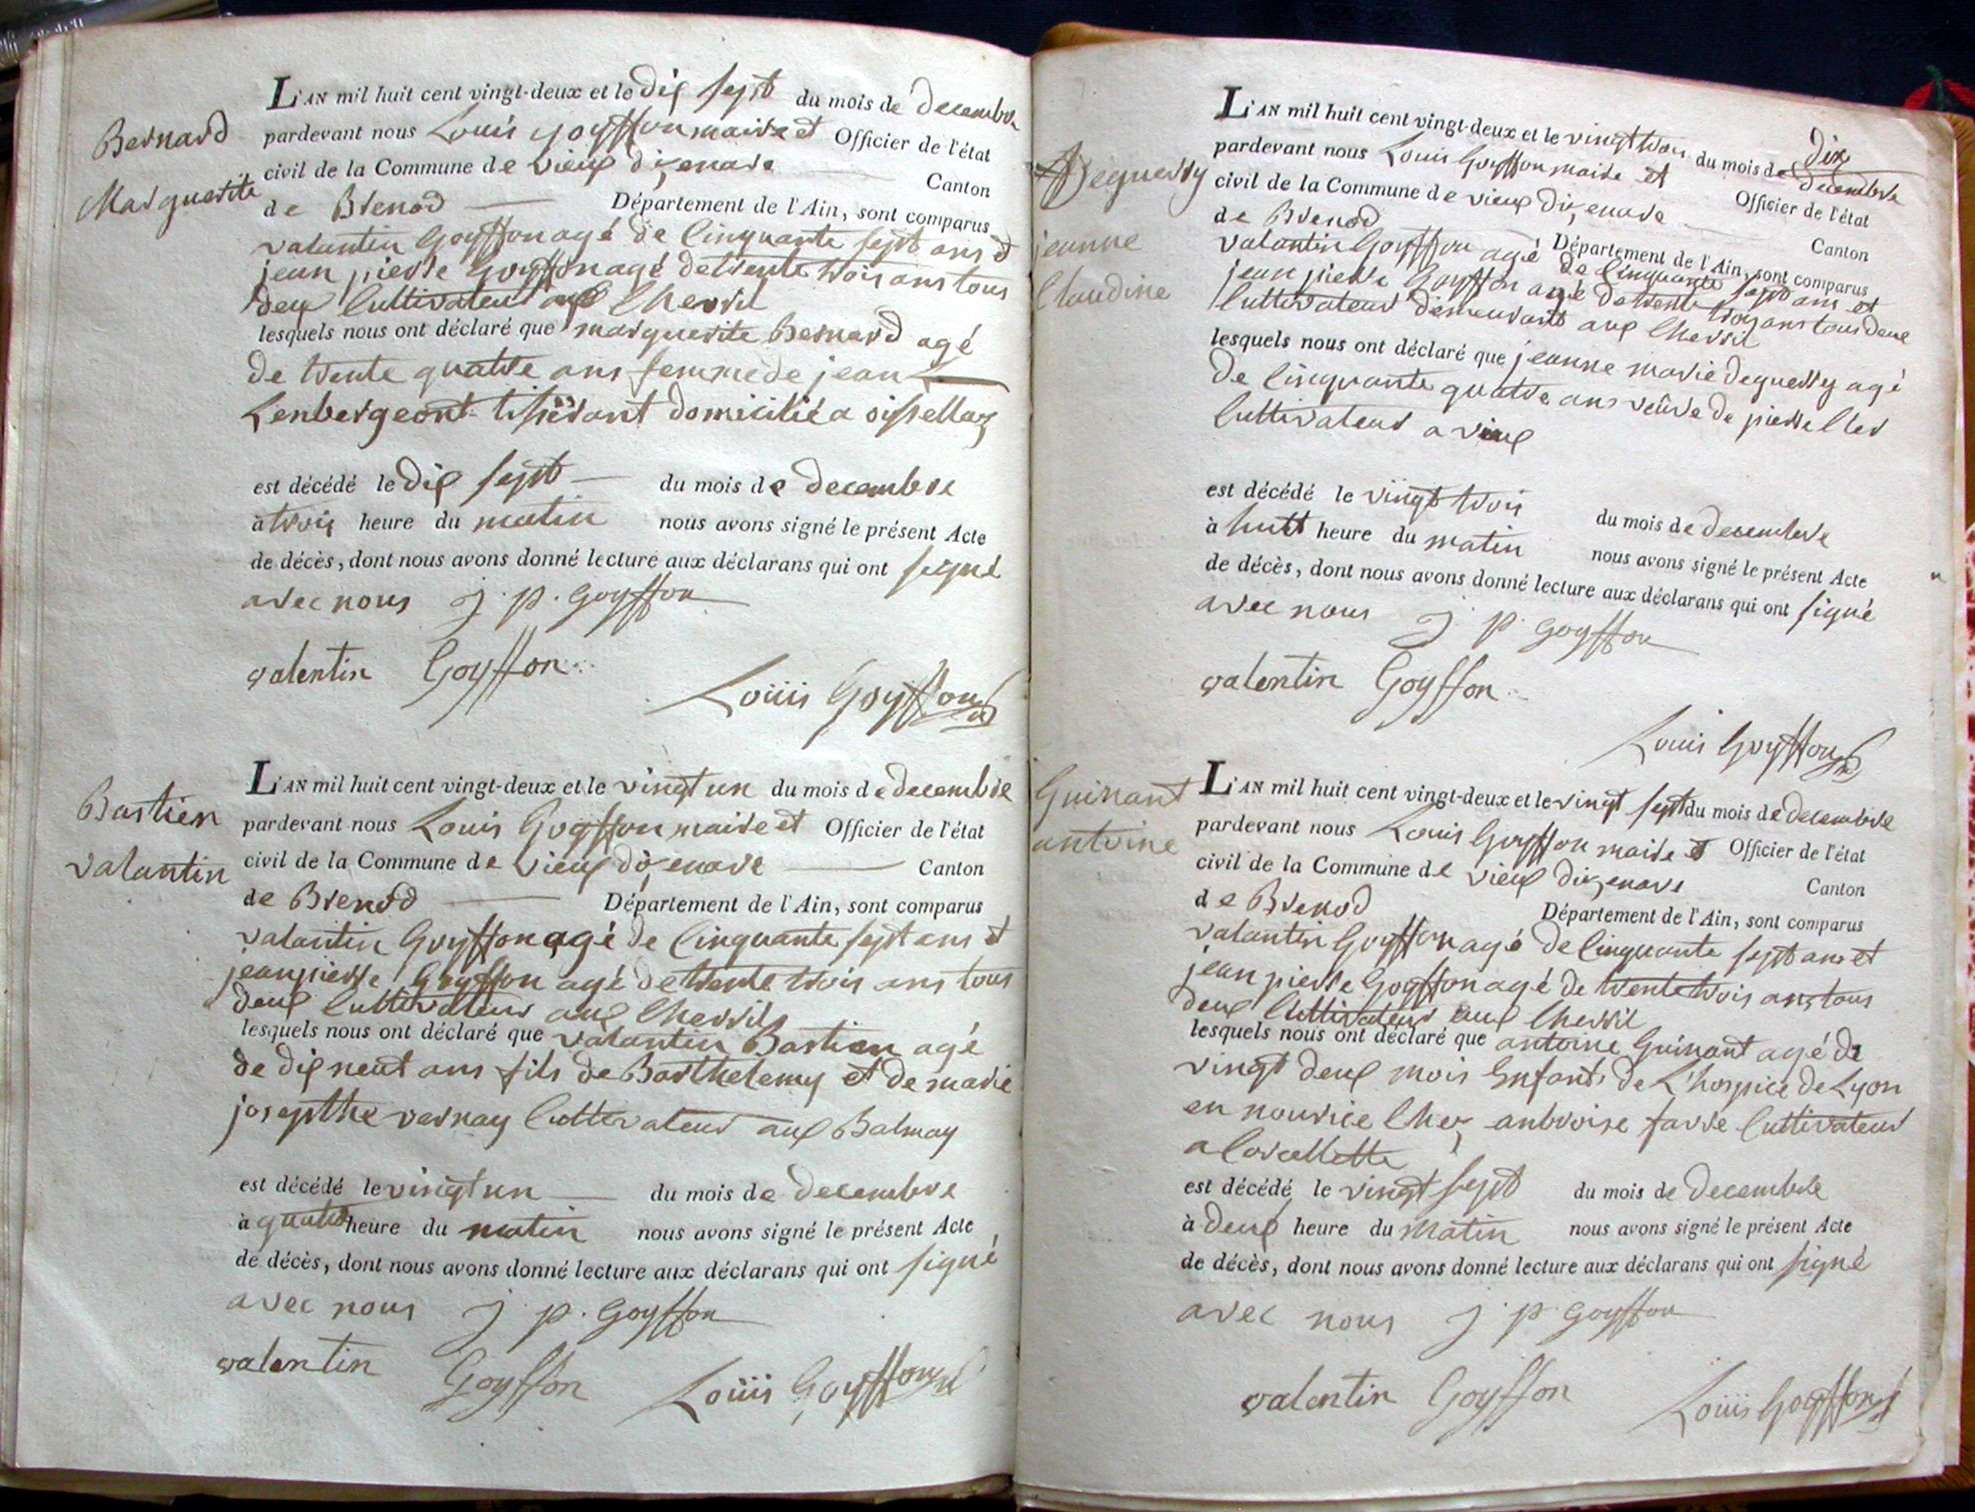 Bernard
Marguerite
L'AN mil huit cent vingt-deux et le dix sept du mois de decembre
pardevant nous Louis goyffon maire et Officier de l'état
civil de la Commune de vieux dizenave Canton
de Brenod Département de l'Ain, sont comparus
valantin Goyffon agé de Cinquante sept ans et
jean pierre Goyffon agé de trente trois ans tous
deux Cultivateur aux Cherril
lesquels nous ont déclaré que marguerite Bernard agé
de trente quatre ans femme de jean
Lenbergeont tisserant domicilié a oissellaz
est décédé le dix sept du mois de decembre
à trois heure du matin nous avons signé le présent Acte
de décès, dont nous avons donné lecture aux déclarans qui ont signé
avec nous j. p. goyffon
valentin Goyffon
Loüis Goyffon
Bastien
valantin
L'AN mil huit cent vingt-deux et le vingt un du mois de decembre
pardevant nous Louis Goyffon maire et Officier de l'état
civil de la Commune de vieux dizenave Canton
de Brenod Département de l'Ain, sont comparus
valantin Goyffon agé de Cinquante sept ans et
jean pierre Goyffon agé de trente trois ans tous
deux Cultivateurs aux Cherril
lesquels nous ont déclaré que valantin Bastien agé
de dix neuf ans fils de Barthelemy et de marie
josepthe vernay Cultivateur aux Balmay
est décédé le vingt un du mois de decembre
à quatre heure du matin nous avons signé le présent Acte
de décès, dont nous avons donné lecture aux déclarans qui ont signé
avec nous j. p. goyffon
valentin Goyffon Loüis Goyffon
dix
Deguerry
jeanne
Claudine
L'AN mil huit cent vingt-deux et le vingt trois du mois de decembre
pardevant nous Louis Goyffon maire et Officier de l'état
civil de la Commune de vieux dizenave Canton
de Brenod Département de l'Ain, sont comparus
valantin Goyffon agé de Cinquante sept ans et
jean pierre Goyffon agé de trente trois ans tous deux
Cultivateurs demeurant aux Cherril
lesquels nous ont déclaré que jeanne marie deguerry agé
de Cinquante quatre ans veûve de pierre
Cultivateur a vieux
est décédé le vingt trois du mois de decembre
à huit heure du matin nous avons signé le présent Acte
de décès, dont nous avons donné lecture aux déclarans qui ont signé
avec nous j. p. goyffon
valentin Goyffon
Louis Goyffon
Guinant
antoine
L'AN mil huit cent vingt-deux et le vingt sept du mois de decembre
pardevant nous Louis Goyffon maire et Officier de l'état
civil de la Commune de vieux dizenave Canton
de Brenod Département de l'Ain, sont comparus
valantin Goyffon agé de Cinquante sept ans et
jean pierre Goyffon agé de trente trois ans tous
deux Cultivateurs aux Cherril
lesquels nous ont déclaré que antoine Guinant agé de
vingt deux mois Enfant de L'hospice de Lyon
en nourice Chez anbroise favre Cultivateur
a Corcellette
est décédé le vingt sept du mois de decembre
à deux heure du matin nous avons signé le présent Acte
de décès, dont nous avons donné lecture aux déclarans qui ont signé
avec nous j p goyffon
valentin Goyffon Loüis Goyffon